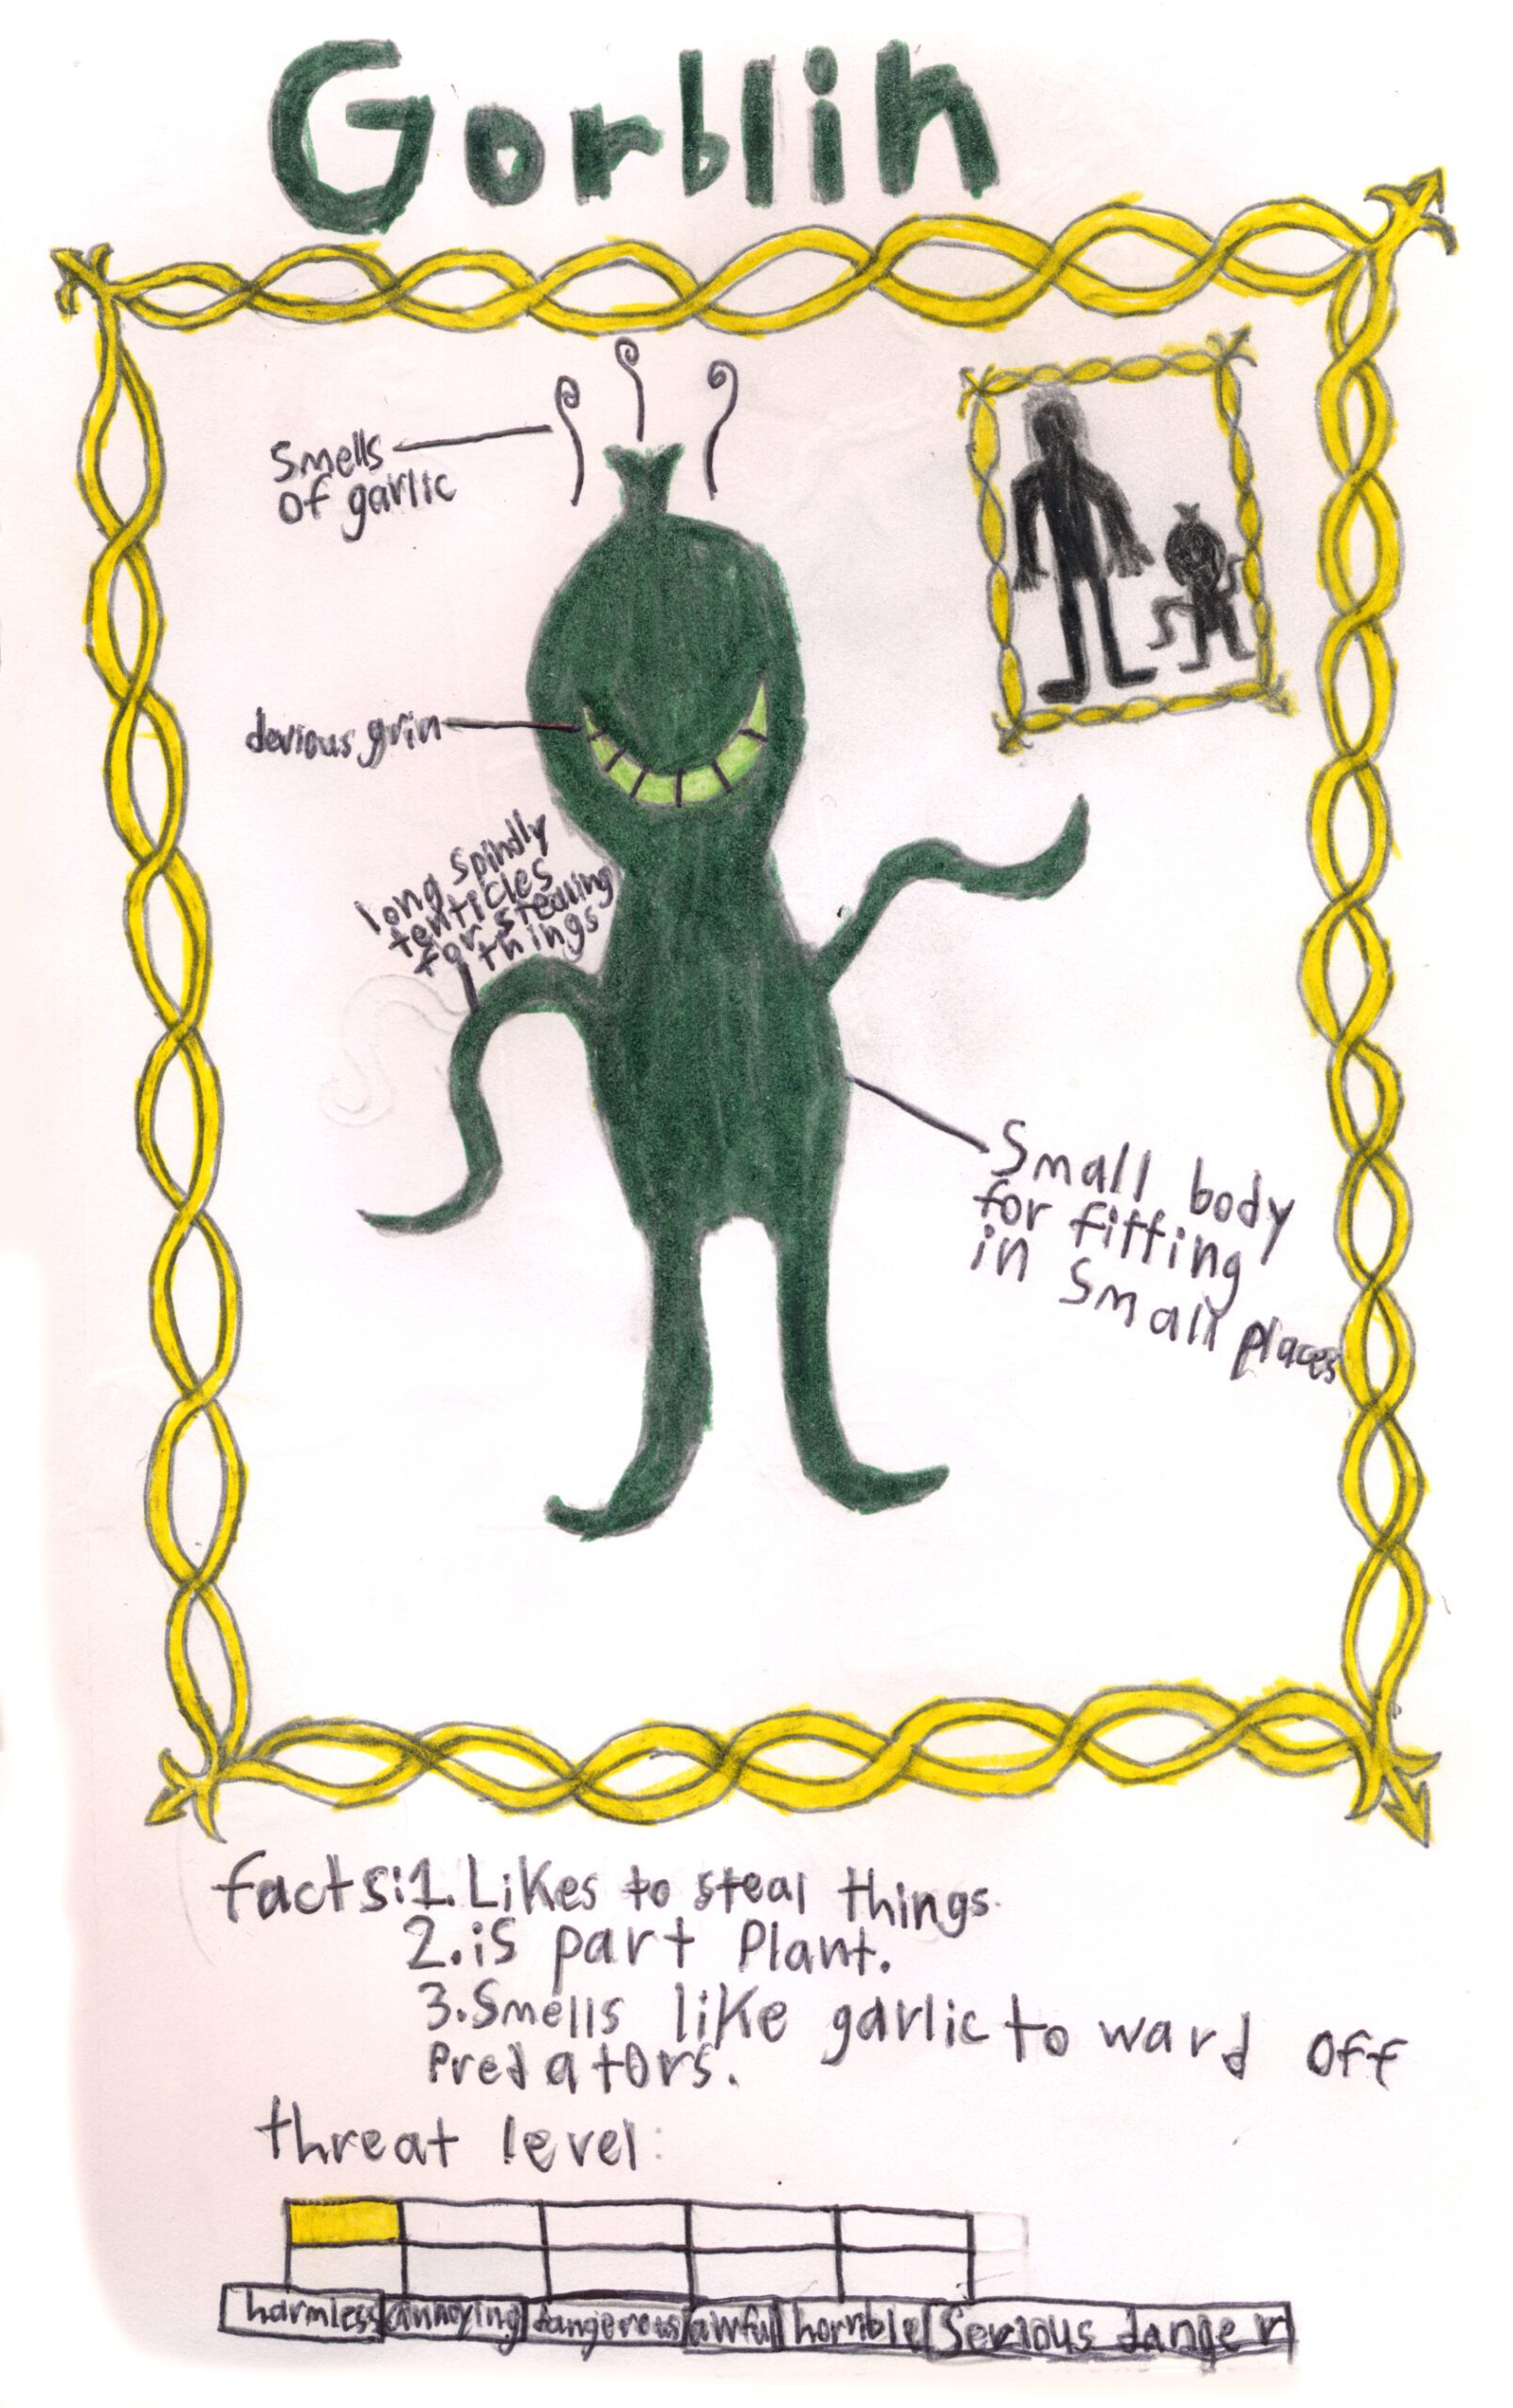 Gorblin
Smells
of garlic
devious grin
long spindly
tenticles
for stealing
things
Small body
for fitting
in Small places
facts:1. Likes to steal things.
2. is part Plant.
3. Smells like garlic to ward off
Predators.
threat level:
harmless annoying dangerous awful horrible Serious danger